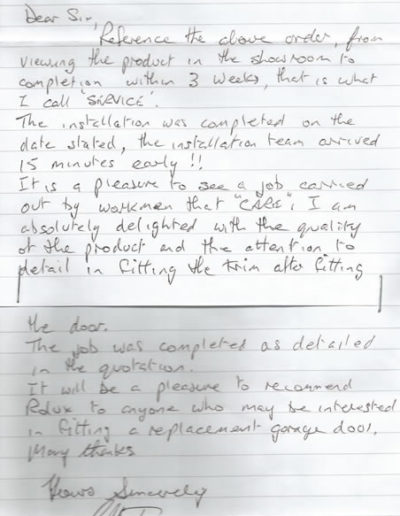 Dear Sir,
Reference the above order, from
viewing the product in the showroom to
completion within 3 weeks, that is what
I call 'SERVICE'.
The installation was completed on the
date stated, the installation team arrived
15 minutes early !!
It is a pleasure to see a job carried
out by workmen that "CARE", I am
absolutely delighted with the quality
of the product and the attention to
detail in fitting the trim after fitting
the door.
The job was completed as detailed
in the quotation.
It will be a pleasure to recommend
Rolux to anyone who may be interested
in fitting a replacement garage door.
Many thanks
Yours Sincerely